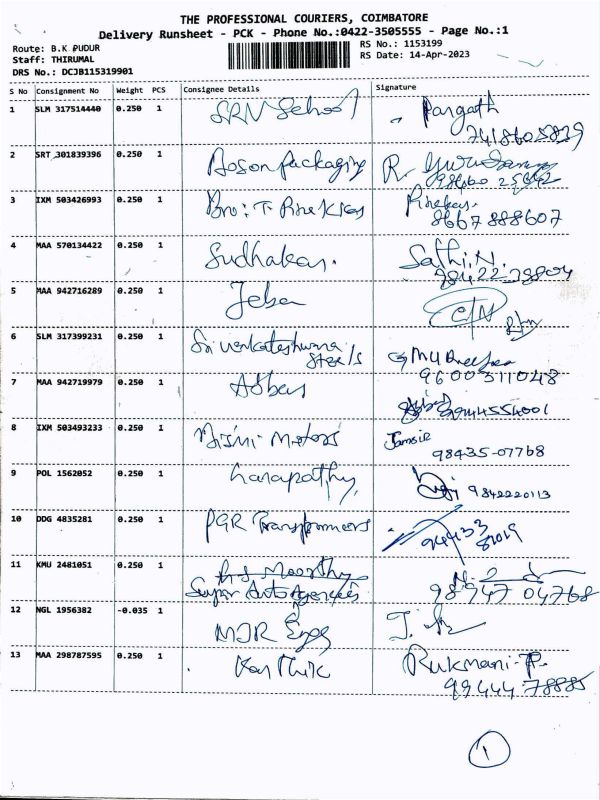 THE PROFESSIONAL COURIERS, COIMBATORE
Delivery Runsheet - PCK - Phone No.:0422-3505555 - Page No.:1
Route: B.K PUDUR
RS No.: 1153199
Staff: THIRUMAL
RS Date: 14-Apr-2023
DRS No.: DCJB115319901
S No Consignment No Weight PCS Consignee Details Signature
1 SLM 317514440 0.250 1 SRV School
2 SRT 301839396 0.250 1 Packaging R.
3 IXM 503426993 0.250 1 Bro: T.
8667888607
4 MAA 570134422 0.250 1 Sudhakar. Sathi.N.
5 MAA 942716289 0.250 1 Jeba
6 SLM 317399231 0.250 1 Sri venkateshwara
Steels
9600311048
7 MAA 942719979 0.250 1 Abbas
8 IXM 503493233 0.250 1 Motors
98435-07768
9 POL 1562052 0.250 1 Ganapathy
9842220113
10 DDG 4835281 0.250 1 PGR Transformers
11 KMU 2481051 0.250 1 Moorthy
Super Auto Agencies 98947 04768
12 NGL 1956382 -0.035 1 MJR Engg
13 MAA 298787595 0.250 1 Karthik Rukmani.P.
99444 78885
1